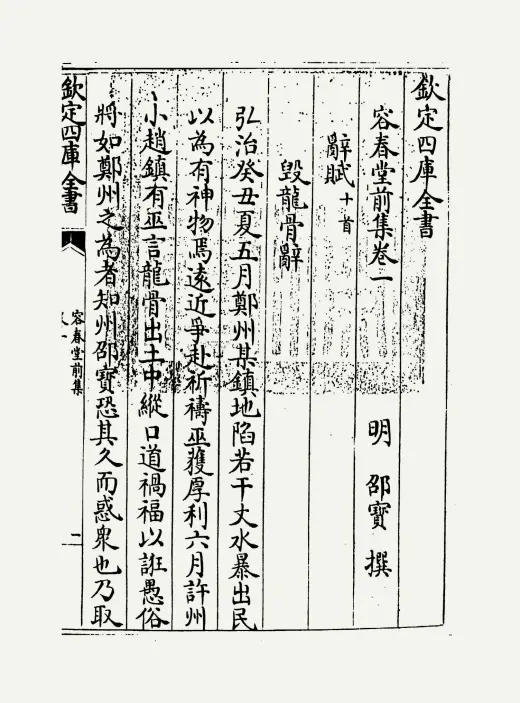 欽定四庫全書
容春堂前集卷一
明 邵寶 撰
辭賦十首
毀龍骨辭
弘治癸丑夏五月鄭州某鎮地陷若干丈水暴出民
以為有神物焉遠近爭赴祈禱巫獲厚利六月許州
小趙鎮有巫言龍骨出土中縱口道禍福以誑愚俗
將如鄭州之為者知州邵寶恐其久而惑衆也乃取
欽定四庫全書
容春堂前集